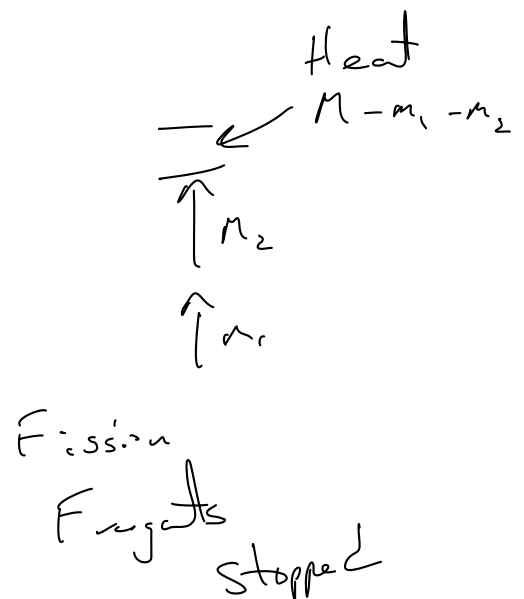 Heat
M - m₁ - m₂
M₂
m₁
Fission
Fragmts
stopped